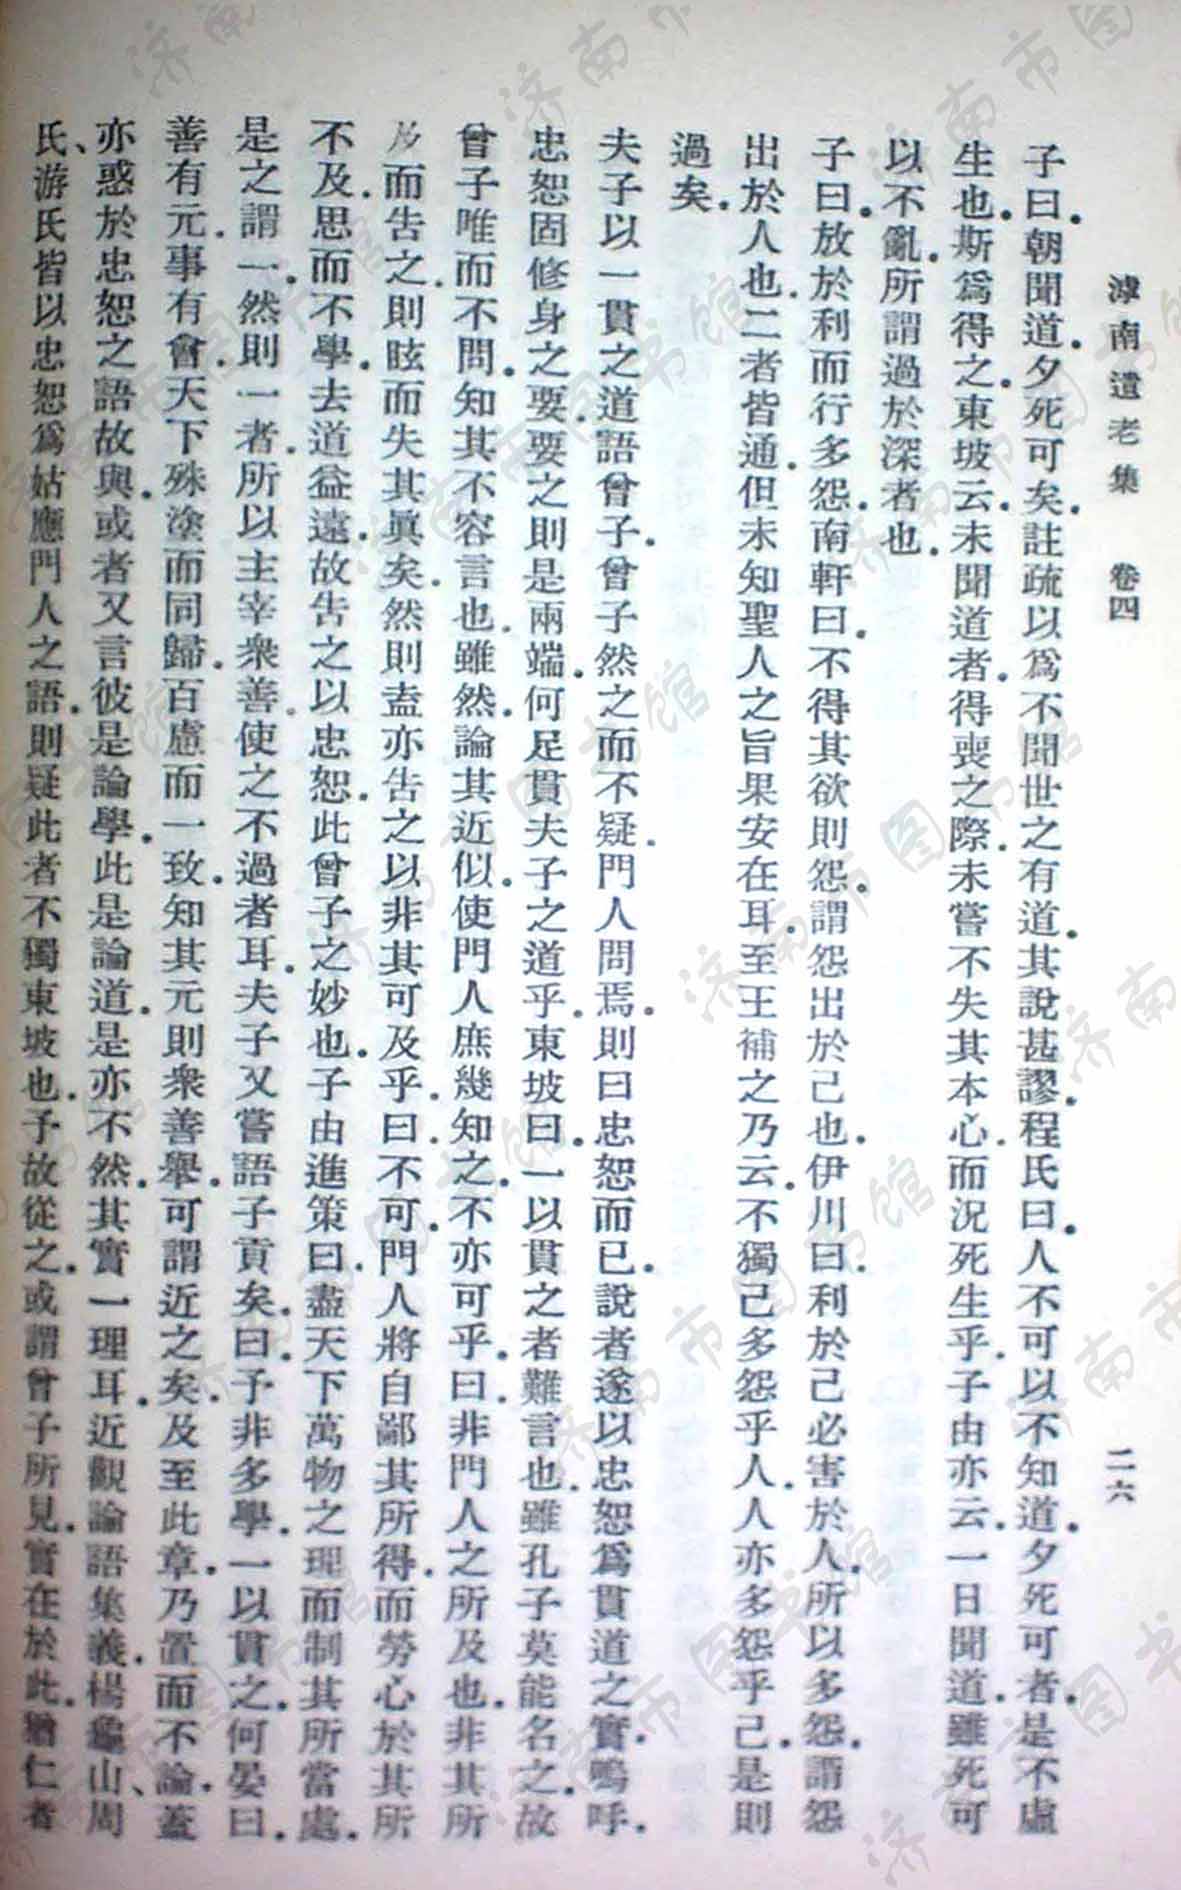 滹南遺老集　卷四　二六
子曰．朝聞道．夕死可矣．註疏以爲不聞世之有道．其說甚謬．程氏曰．人不可以不知道．夕死可者．是不虛
生也．斯爲得之．東坡云．未聞道者．得喪之際．未嘗不失其本心．而況死生乎．子由亦云．一日聞道．雖死可
以不亂．所謂過於深者也．
子曰．放於利而行多怨．南軒曰．不得其欲則怨．謂怨出於己也．伊川曰．利於己必害於人．所以多怨．謂怨
出於人也．二者皆通．但未知聖人之旨果安在耳．至王補之乃云．不獨己多怨乎人．人亦多怨乎己．是則
過矣．
夫子以一貫之道語曾子．曾子然之而不疑．門人問焉．則曰忠恕而已．說者遂以忠恕爲貫道之實．嗚呼．
忠恕固修身之要．要之則是兩端．何足貫夫子之道乎．東坡曰．一以貫之者．難言也．雖孔子莫能名之．故
曾子唯而不問．知其不容言也．雖然．論其近似．使門人庶幾知之．不亦可乎．曰．非門人之所及也．非其所
及而告之．則眩而失其眞矣．然則盍亦告之以非其可及乎．曰．不可．門人將自鄙其所得．而勞心於其所
不及．思而不學．去道益遠．故告之以忠恕．此曾子之妙也．子由進策曰．盡天下萬物之理而制其所當處．
是之謂一．然則一者．所以主宰衆善．使之不過者耳．夫子又嘗語子貢矣．曰．予非多學．一以貫之．何晏曰．
善有元．事有會．天下殊塗而同歸．百慮而一致．知其元則衆善舉．可謂近之矣．及至此章．乃置而不論．蓋
亦惑於忠恕之語故與．或者又言彼是論學．此是論道．是亦不然．其實一理耳．近觀論語集義．楊龜山、周
氏、游氏皆以忠恕爲姑應門人之語．則疑此者不獨東坡也．予故從之．或謂曾子所見．實在於此．猶仁者